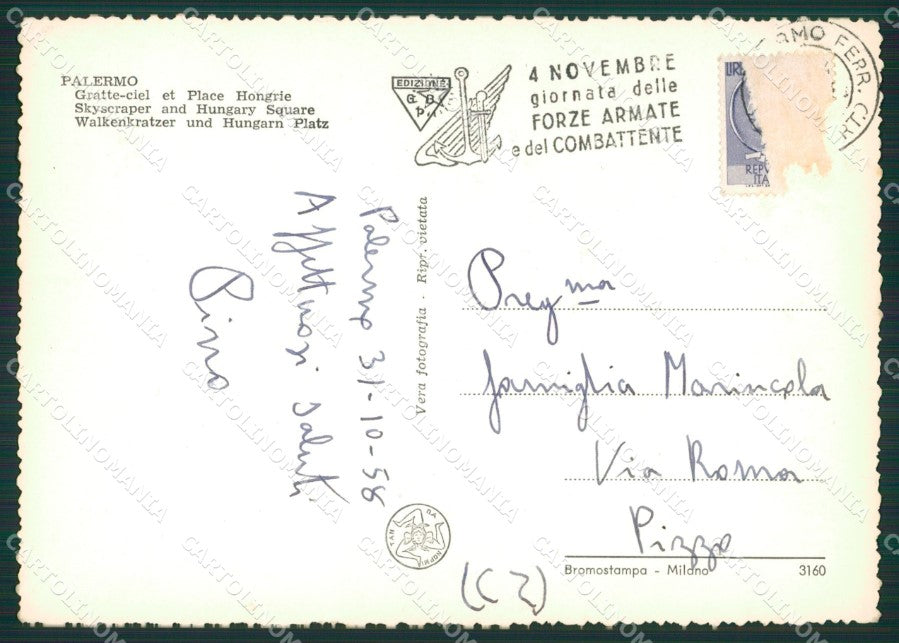 PALERMO
Gratte-ciel et Place Hongrie
Skyscraper and Hungary Square
Walkenkratzer und Hungarn Platz
EDIZIONE
G B
P
4 NOVEMBRE
giornata delle
FORZE ARMATE
e del COMBATTENTE
RMO FERR.
LIRE
REPV
ITA
Palermo 31-10-58
Affettuosi saluti
Pino
Vera fotografia - Ripr. vietata
Preg ma
famiglia Marincola
Via Roma
Pizzo
Bromostampa - Milano
3160
(CZ)
CARTOLINOMANIA